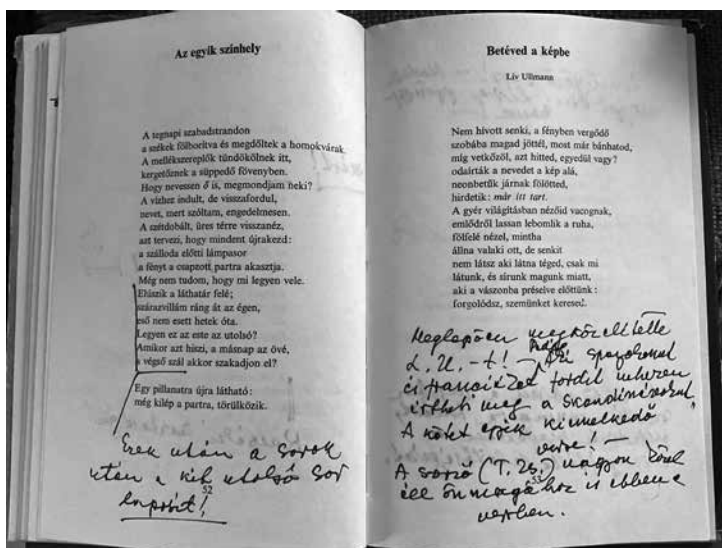 Az egyik színhely
A tegnapi szabadstrandon
a székek fölborítva és megdőltek a homokvárak.
A mellékszereplők tündökölnek itt,
kergetőznek a süppedő fövenyben.
Hogy nevessen ő is, megmondjam neki?
A vízhez indult, de visszafordul,
nevet, mert szóltam, engedelmesen.
A szétdobált, üres térre visszanéz,
azt tervezi, hogy mindent újrakezd:
a szálloda előtti lámpasor
a fényt a csapzott partra akasztja.
Még nem tudom, hogy mi legyen vele.
Elúszik a láthatár felé;
szárazvillám ráng át az égen,
eső nem esett hetek óta.
Legyen ez az este az utolsó?
Amikor azt hiszi, a másnap az övé,
a végső szál akkor szakadjon el?
Egy pillanatra újra látható:
még kilép a partra, törülközik.
Ezek után a sorok
után a két utolsó sor
lapos!
52
Betéved a képbe
Liv Ullmann
Nem hívott senki, a fényben vergődő
szobába magad jöttél, most már bánhatod,
míg vetkőzöl, azt hitted, egyedül vagy?
odaírták a nevedet a kép alá,
neonbetűk járnak fölötted,
hirdetik: már itt tart.
A gyér világításban nézőid vacognak,
emlődről lassan lebomlik a ruha,
fölfelé nézel, mintha
állna valaki ott, de senkit
nem látsz aki látna téged, csak mi
látunk, és sírunk magunk miatt,
aki a vászonba préselve előttünk:
forgolódsz, szemünket keresed.
Meglepően megközelítette
L. U.-t! – Aki spanyolokat
és franciákat fordít nehezen
értheti meg a skandinávokat.
A kötet egyik kiemelkedő
verse! –
A szerző (T. Zs.) nagyon közel
áll önmagához is ebben a
versben.
53